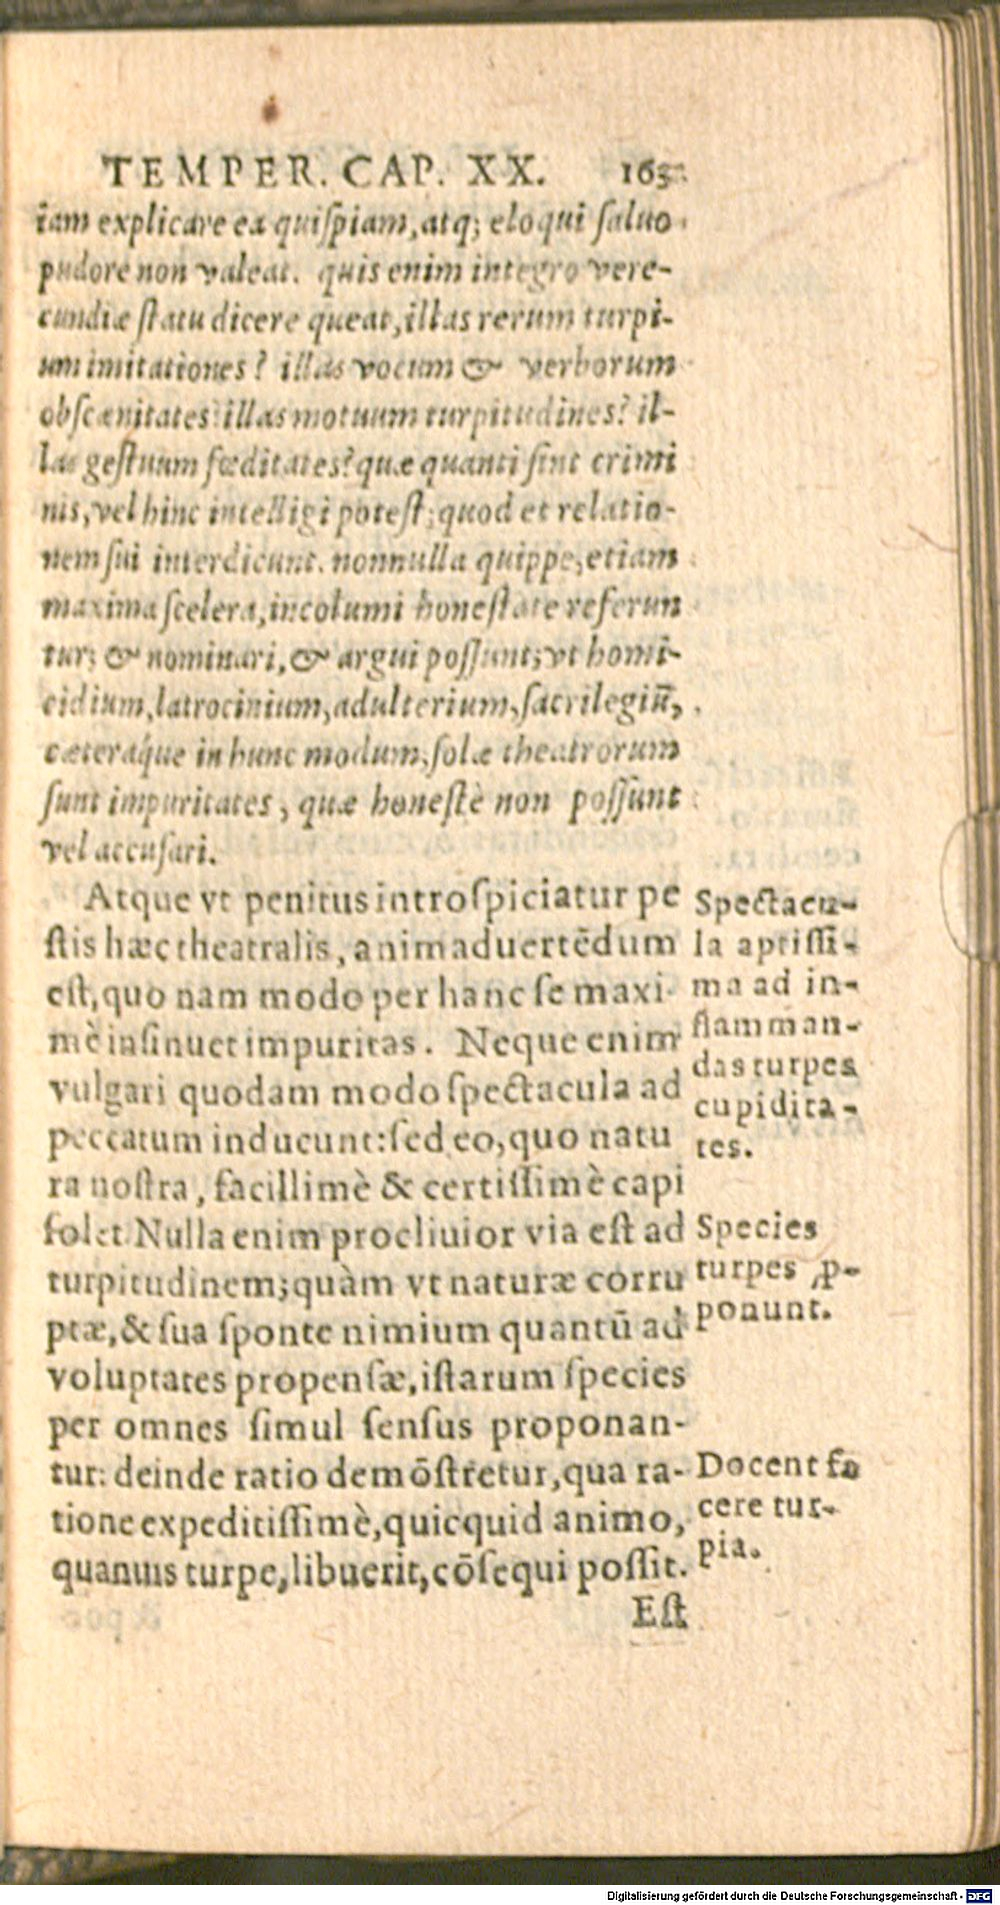 TEMPER. CAP. XX. 165
iam explicare ea quiſpiam, atq; eloqui ſaluo
pudore non valeat. quis enim integro vere-
cundiæ ſtatu dicere queat, illas rerum turpi-
um imitationes? illas vocum & verborum
obſcænitates? illas motuum turpitudines? il-
las geſtuum fœditates? quæ quanti ſint crimi
nis, vel hinc intelligi poteſt; quod et relatio-
nem ſui interdicunt. nonnulla quippe, etiam
maxima ſcelera, incolumi honeſtate referun
tur; & nominari, & argui poſſunt; vt homi-
cidium, latrocinium, adulterium, ſacrilegiũ,
cæteraq́ue in hunc modum, ſolæ theatrorum
ſunt impuritates, quæ honeſtè non poſſunt
vel accuſari.
Atque vt penitus introſpiciatur pe
ſtis hæc theatralis, animaduertẽdum
eſt, quo nam modo per hanc ſe maxi-
mè inſinuet impuritas. Neque enim
vulgari quodam modo ſpectacula ad
peccatum inducunt: ſed eo, quo natu
ra noſtra, facillimè & certiſſimè capi
ſolet. Nulla enim procliuior via eſt ad
turpitudinem; quàm vt naturæ corru
ptæ, & ſua ſponte nimium quantũ ad
voluptates propenſæ, iſtarum ſpecies
per omnes ſimul ſenſus proponan-
tur: deinde ratio demõſtretur, qua ra-
tione expeditiſſimè, quicquid animo,
quanuis turpe, libuerit, cõſequi poſſit.
Eſt
Spectacu-
la aptiſſi-
ma ad in-
flamman-
das turpes
cupidita-
tes.
Species
turpes ꝓ-
ponunt.
Docent fa
cere tur-
pia.
Digitalisierung gefördert durch die Deutsche Forschungsgemeinschaft - DFG